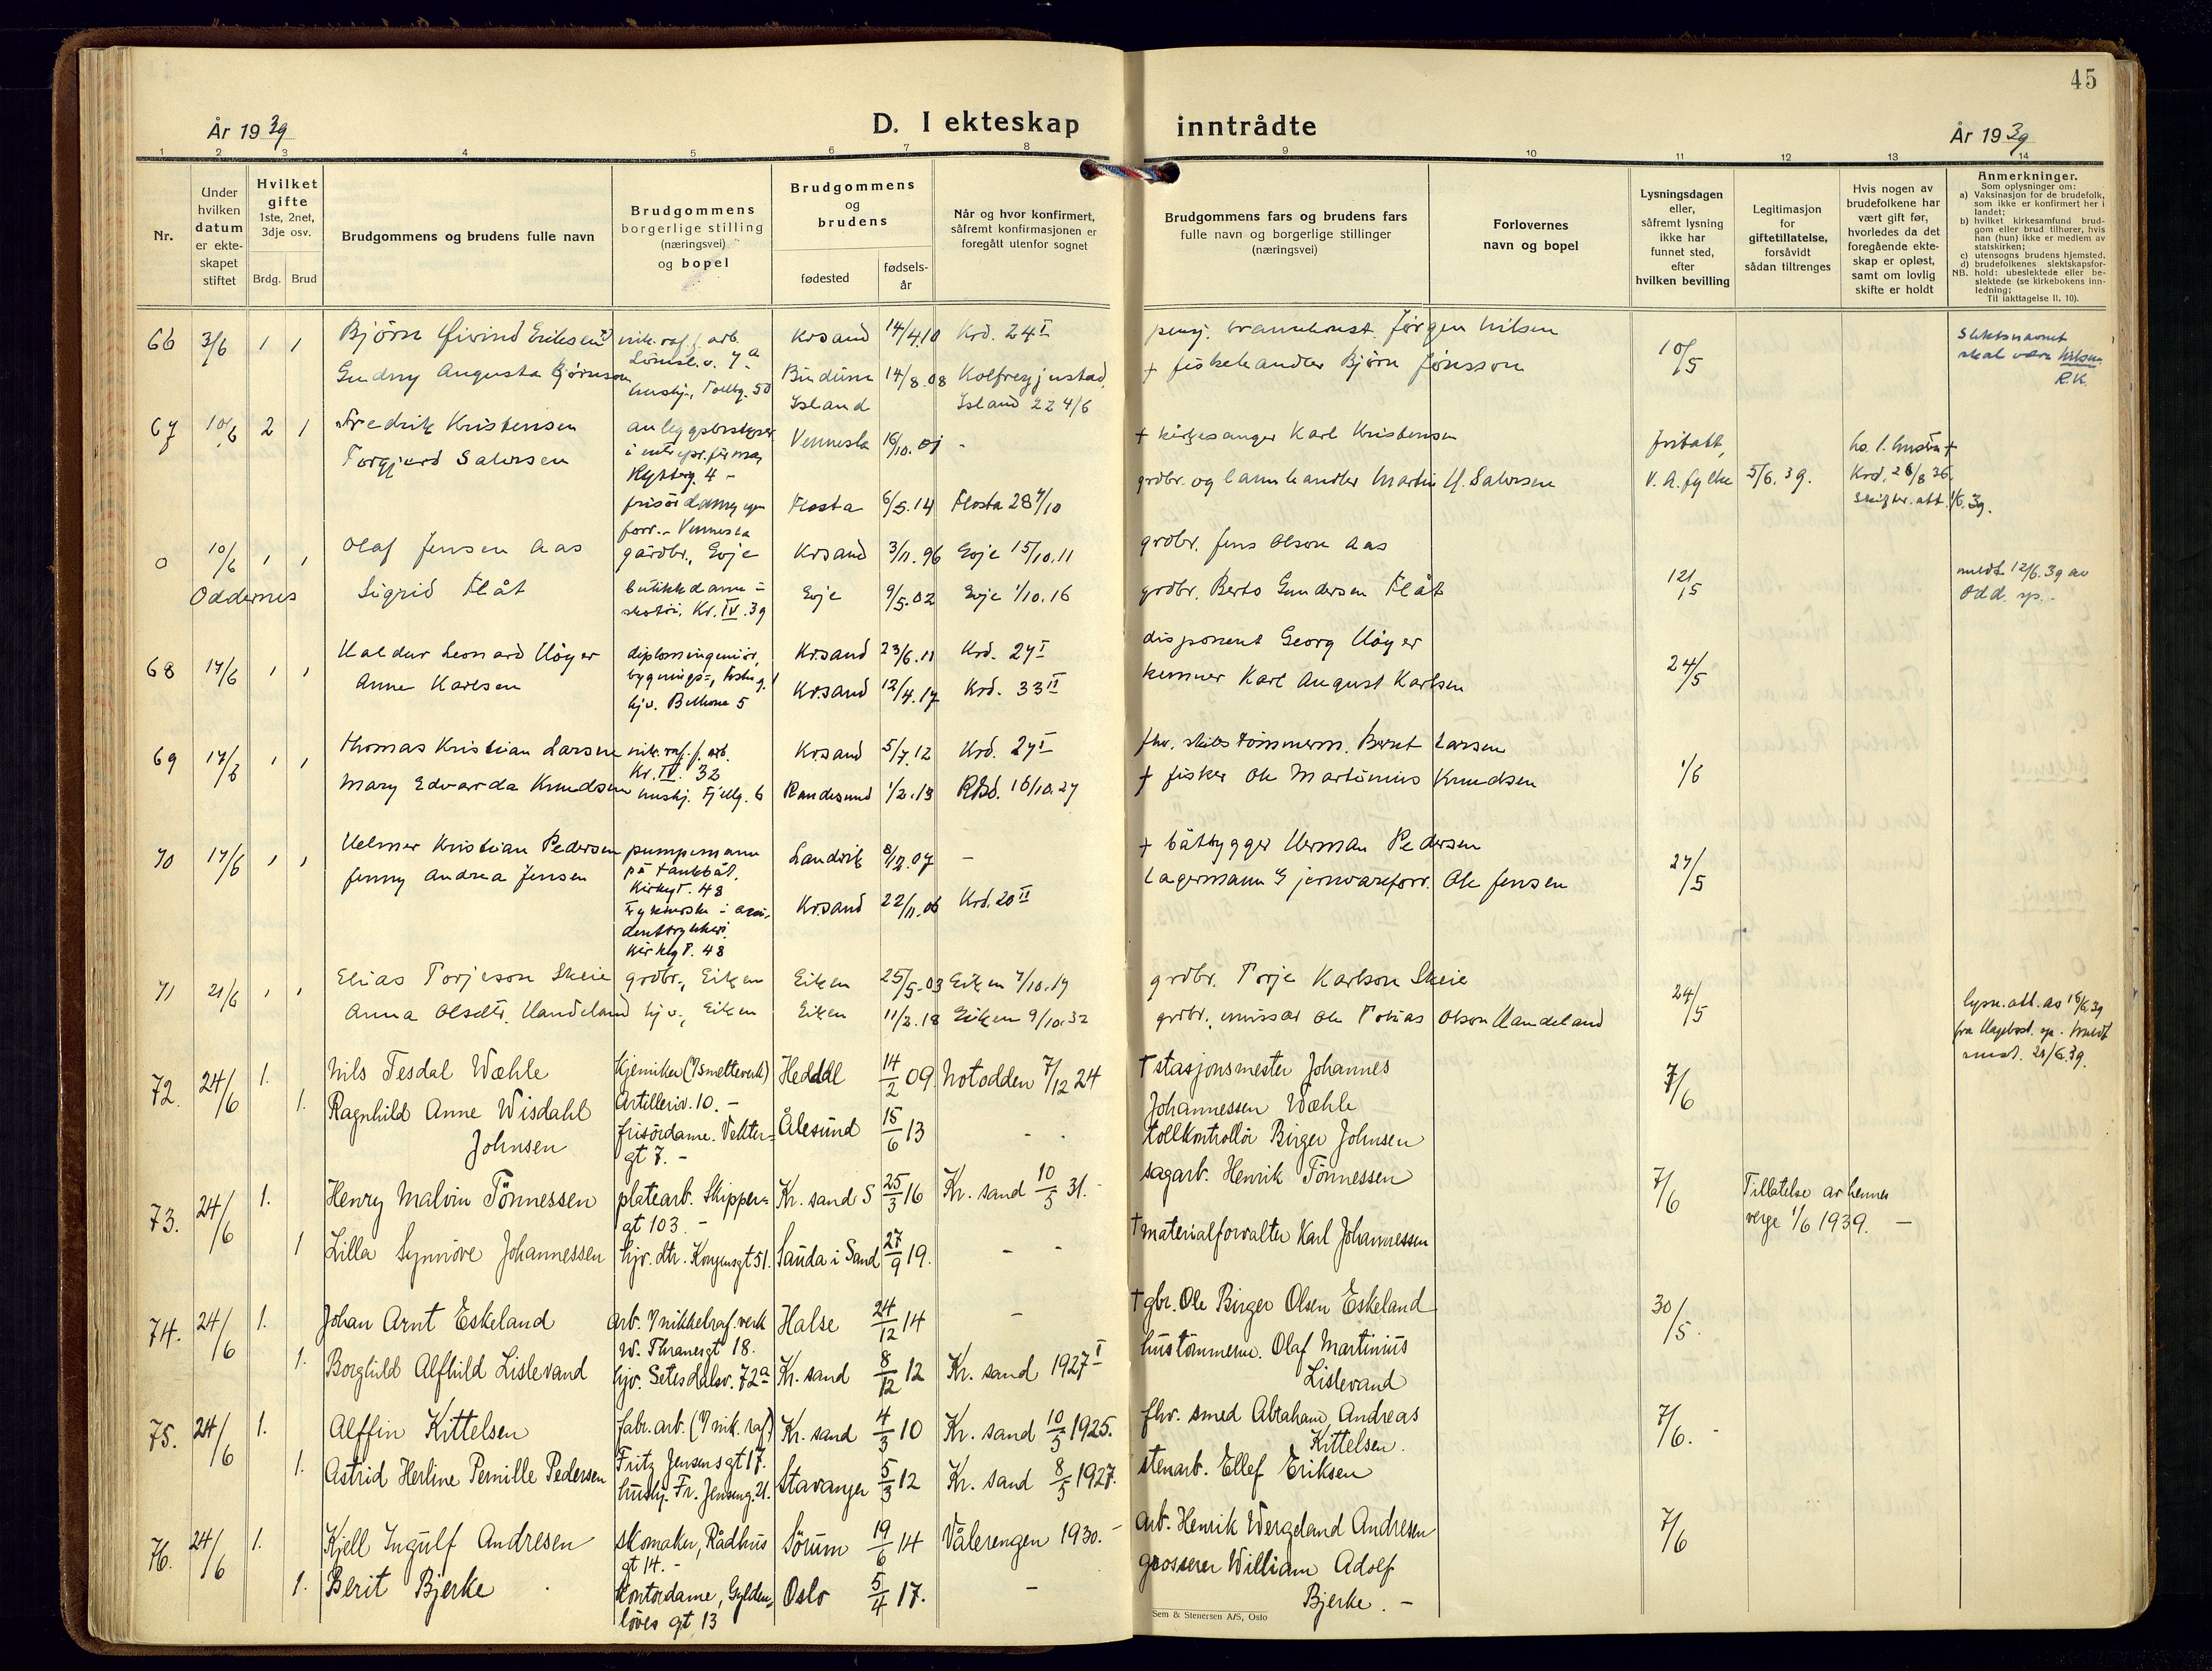 45
År 1939
D. I ekteskap inntrådte
År 1939
1 2 3 4 5 6 7 8 9 10 11 12 13 14
Nr.
Under hvilken datum er ekte-skapet stiftet
Hvilket gifte 1ste, 2net, 3dje osv.
Brdg. Brud
Brudgommens og brudens fulle navn
Brudgommens borgerlige stilling (næringsvei) og bopel
Brudgommens og brudens
fødested
fødsels-år
Når og hvor konfirmert, såfremt konfirmasjonen er foregått utenfor sognet
Brudgommens fars og brudens fars fulle navn og borgerlige stillinger (næringsvei)
Forlovernes navn og bopel
Lysningsdagen eller, såfremt lysning ikke har funnet sted, efter hvilken bevilling
Legitimasjon for giftetillatelse, forsåvidt sådan tiltrenges
Hvis nogen av brudefolkene har vært gift før, hvorledes da det foregående ekte-skap er opløst, samt om lovlig skifte er holdt
Anmerkninger.
Som oplysninger om:
a) Vaksinasjon for de brudefolk, som ikke er konfirmert her i landet;
b) hvilket kirkesamfund brud-gom eller brud tilhører, hvis han (hun) ikke er medlem av statskirken;
c) utensogns brudens hjemsted.
d) brudefolkenes slektskapsfor-hold: ubeslektede eller be-slektede (se kirkebokens inn-ledning;
NB. Til iakttagelse II. 10).
66 3/6 1 1 Bjørn Øivind Eriksen nik. raf. f. arb. Krsand 14/4.10 Krd. 24 I Jørgen Nilsen 10/5 Slektsnavnet
skal være Nilsen
R.K.
Gudny Augusta Bjørnson hushj., Tollbg. 50 14/8.08 + fiskehandler Bjørn Jónsson
Island Island 22 4/6
67 10/6 2 1 Fredrik Kristensen anleggsbestyrer Vennesla 16/10.01 - + kirkesanger Karl Kristensen
Torgjerd Salvesen Rytterg. 4 - grdbr. og landhandler Martin H. Salvesen V. A. fylke 5/6.39.
Flosta 6/5.14 Flosta 28 7/10
forr. - Vennesla
0 10/6 1 1 Olaf Jensen Aas gårdbr., Evje Krsand 3/11.96 Evje 15/10.11 grdbr. Jens Olson Aas 12/5 meldt 12/6.39 av
Odd. sp.
Oddernes Sigrid Flåt butikkdame i Evje 9/5.02 Evje 1/10.16 grdbr. Berto Gundersen Flåt
skotøi, Kr. IV. 39
68 17/6 1 1 Haldur Leonard Høyer diplomingeniør, Krsand 23/6.11 Krd. 27 I disponent Georg Høyer 24/5
Anne Karlsen Krsand 12/4.17 Krd. 33 II kemner Karl August Karlsen
hjv. Bellona 5
69 17/6 1 1 Thomas Kristian Larsen nik. raf. f. arb. Krsand 5/7.12 Krd. 27 I fhv. skibstømmerm. Bernt Larsen 1/6
Kr. IV. 32
Mary Edvarda Knudsen hushj. Fjellg. 6 Randesund 1/2.13 16/10.27 + fisker Ole Martinius Knudsen
70 17/6 1 1 Helmer Kristian Pedersen pumpemann Landvik 8/12.07 - + båtbygger Herman Pedersen 27/5
på tankbåt,
Jenny Andrea Jensen Kirkegt. 48 lagermann i jernvareforr. Ole Jensen
Krsand 22/11.06 Krd. 20 II
denttrykkeri
Kirkegt. 48
71 21/6 1 1 Elias Torjeson Skeie grdbr., Eiken Eiken 25/5.03 Eiken 7/10.17 grdbr. Torje Karlson Skeie 24/5 lysn. att. av 16/6.39
fra Hægebost. sp. - meldt
21/6.39.
Anna Olsdtr. Handeland hjv., Eiken Eiken 11/2.18 Eiken 9/10.32 grdbr. Ole Tobias Olson Handeland
72. 24/6 1. Nils Tesdal Wæhle Kjemiker (v/ smelteverk) Heddal 14/2 09. Notodden 7/12 24 † stasjonsmester Johannes 7/6
Artilleriv. 10. - Johannessen Wæhle
1. Ragnhild Anne Wisdahl frisördame. Vekter- Ålesund 15/6 13 - - tollkontrollör Birger Johnsen
Johnsen gt 7. -
73. 24/6 1. Henry Malvin Tönnessen platearb. Skipper- Kr. sand S 25/3 16 Kr. sand 10/5 31. - sagarb. Henrik Tönnessen 7/6 Tillatelse av hennes
gt 103. - verge 1/6 1939. -
1 Lilla Synnöve Johannessen hjv. dtr. Kongensgt 51. Sauda i Sand 27/9 19. - - † materialforvalter Karl Johannessen
74. 24/6 1. Johan Arnt Eskeland arb. v/ nikkelraf. verk Halse 24/12 14 - † gbr. Ole Birger Olsen Eskeland 30/5.
W. Thranesgt 18.
1. Borghild Alfhild Lislevand hjv. Setesdalsv. 72a Kr. sand 8/12 12 Kr. sand 1927 I hustömmerm. Olaf Martinius
Lislevand
75. 24/6 1. Alffin Kittelsen fabr. arb. (v/ nik. raf.) Kr. sand 4/3 10 Kr. sand 10/5 1925. fhv. smed Abraham Andreas 7/6. -
Fritz Jensensgt 17. Kittelsen.
1. Astrid Herline Pernille Pedersen hushj. Fr. Jenseng. 21. Stavanger 5/3 12 Kr. sand 8/5 1927. stenarb. Ellef Eriksen
76. 24/6 1. Kjell Ingulf Andresen skomaker, Rådhus Sörum 19/6 14 Vålerengen 1930. - arb. Henrik Wergeland Andresen 7/6
gt 14. -
1. Berit Bjerke kontordame, Gylden- Oslo 5/4 17. - grosserer William Adolf
löves gt 13 Bjerke. -
Sem & Stenersen A/S, Oslo